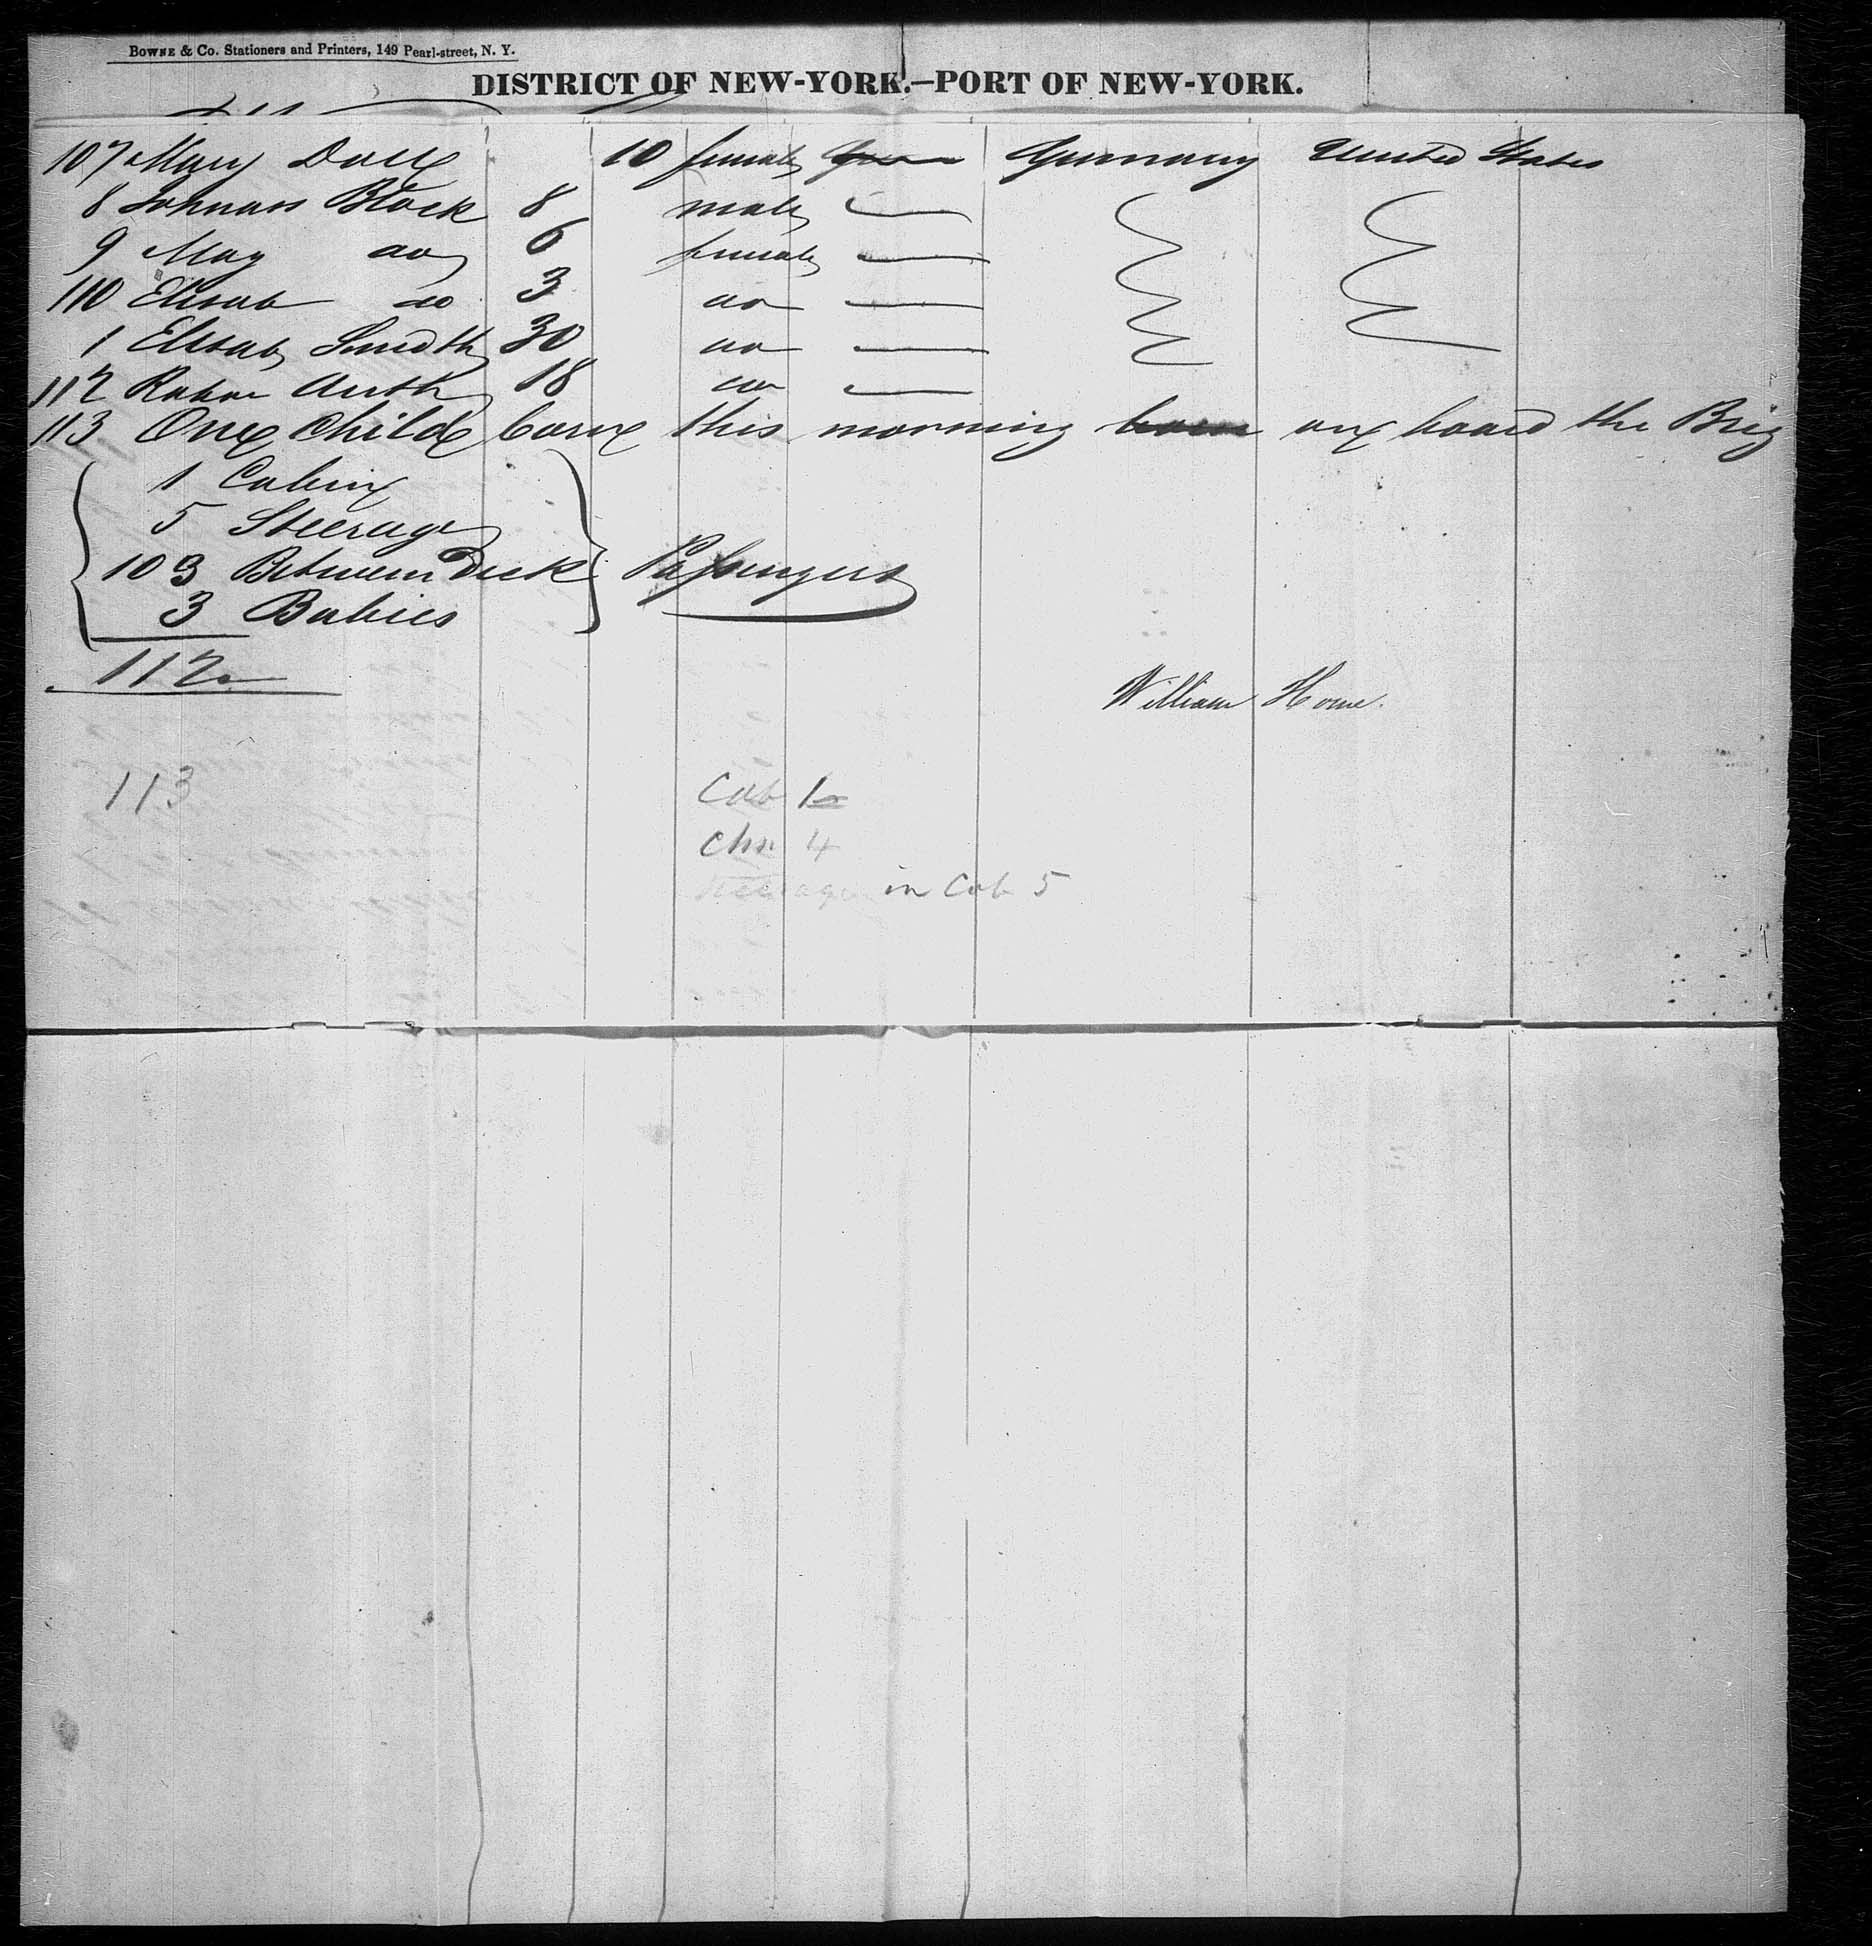 BOWNE & Co. Stationers and Printers, 149 Pearl-street, N. Y.
DISTRICT OF NEW-YORK.—PORT OF NEW-YORK.
107 Mary Doll 10 female Germany United States
8 Johnass Block 8 male
9 May do 6 female
110 Elisab do 3 do
1 Elisab Smidth 30 do
112 18 do
113 One Child born this morning born on board the Brig
1 Cabin
5 Steerage
103 Between Deck Passengers
3 Babies
112
William Home.
113
Cab 1
Chn 4
Steerage in Cab 5